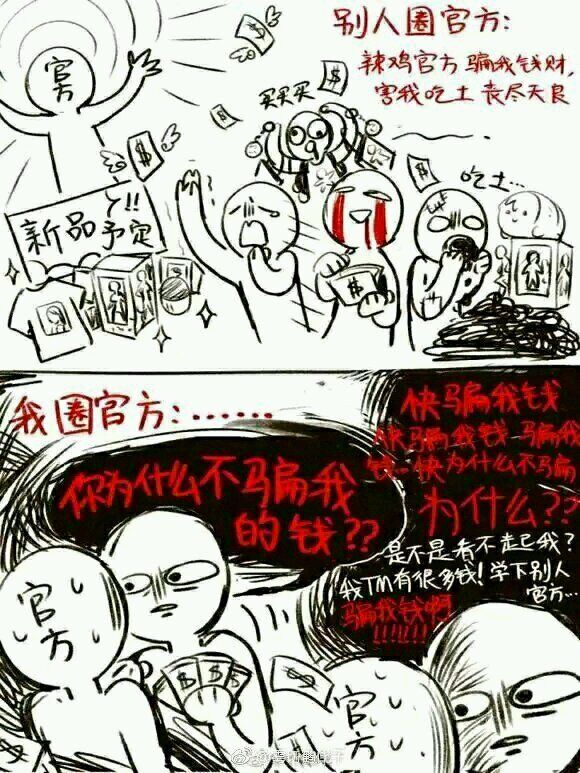 别人圈官方:
辣鸡官方 骗我钱财,
害我吃土 丧尽天良
官方
买买买
吃土…
Y!!
新品予定
我圈官方:……
你为什么不骗我
的钱??
快骗我钱
快骗我钱 骗我
钱 快为什么不骗
为什么??
是不是看不起我?
我TM有很多钱!学下别人
官方…
骗我钱啊
!!!!!!!
官方
官方